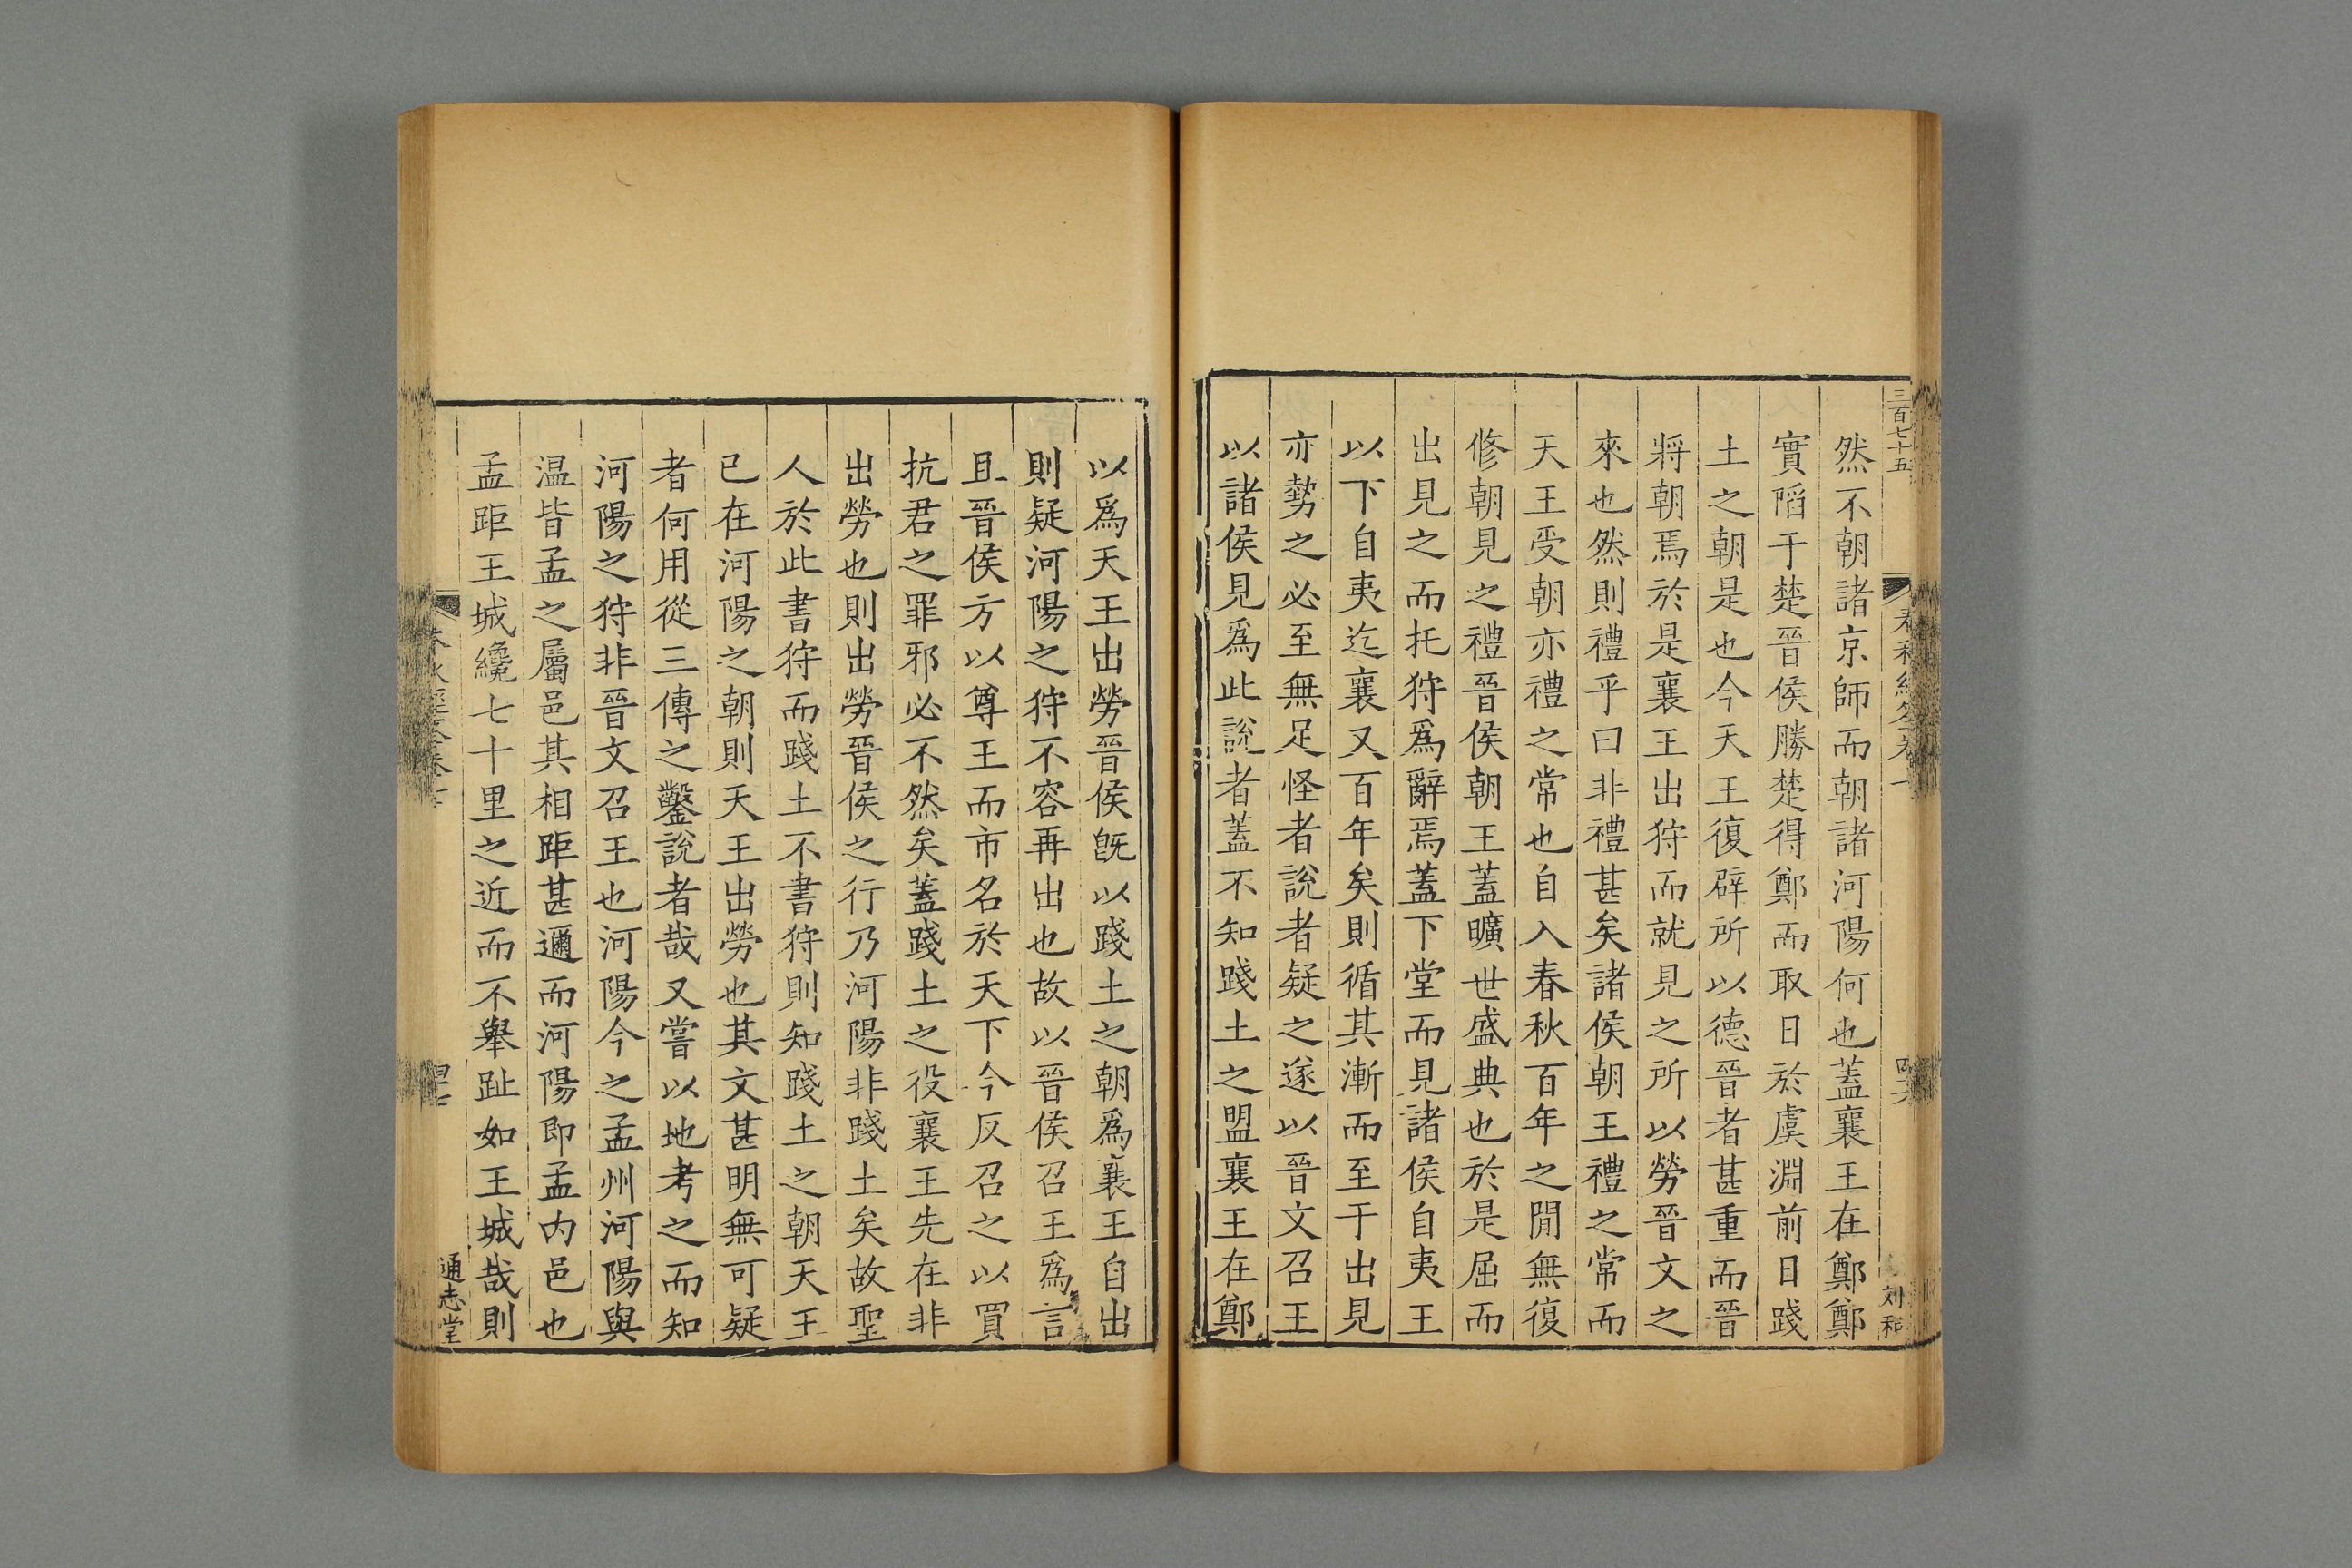 三百七十五
然不朝諸京師而朝諸河陽何也蓋襄王在鄭鄭
實䧟于楚晉侯勝楚得鄭而取日於虞淵前日踐
土之朝是也今天王復辟所以德晉者甚重而晉
將朝焉於是襄王出狩而就見之所以勞晉文之
來也然則禮乎曰非禮甚矣諸侯朝王禮之常而
天王受朝亦禮之常也自入春秋百年之閒無復
修朝見之禮晉侯朝王蓋曠世盛典也於是屈而
出見之而托狩爲辭焉蓋下堂而見諸侯自夷王
以下自夷迄襄又百年矣則循其漸而至于出見
亦勢之必至無足怪者說者疑之遂以晉文召王
以諸侯見爲此說者蓋不知踐土之盟襄王在鄭
以爲天王出勞晉侯旣以踐土之朝爲襄王自出
則疑河陽之狩不容再出也故以晉侯召王爲言
且晉侯方以尊王而市名於天下今反召之以買
抗君之罪邪必不然矣蓋踐土之役襄王先在非
出勞也則出勞晉侯之行乃河陽非踐土矣故聖
人於此書狩而踐土不書狩則知踐土之朝天王
已在河陽之朝則天王出勞也其文甚明無可疑
者何用從三傳之鑿說者哉又嘗以地考之而知
河陽之狩非晉文召王也河陽今之孟州河陽與
温皆孟之屬邑其相距甚邇而河陽即孟内邑也
孟距王城纔七十里之近而不舉趾如王城哉則
通志堂